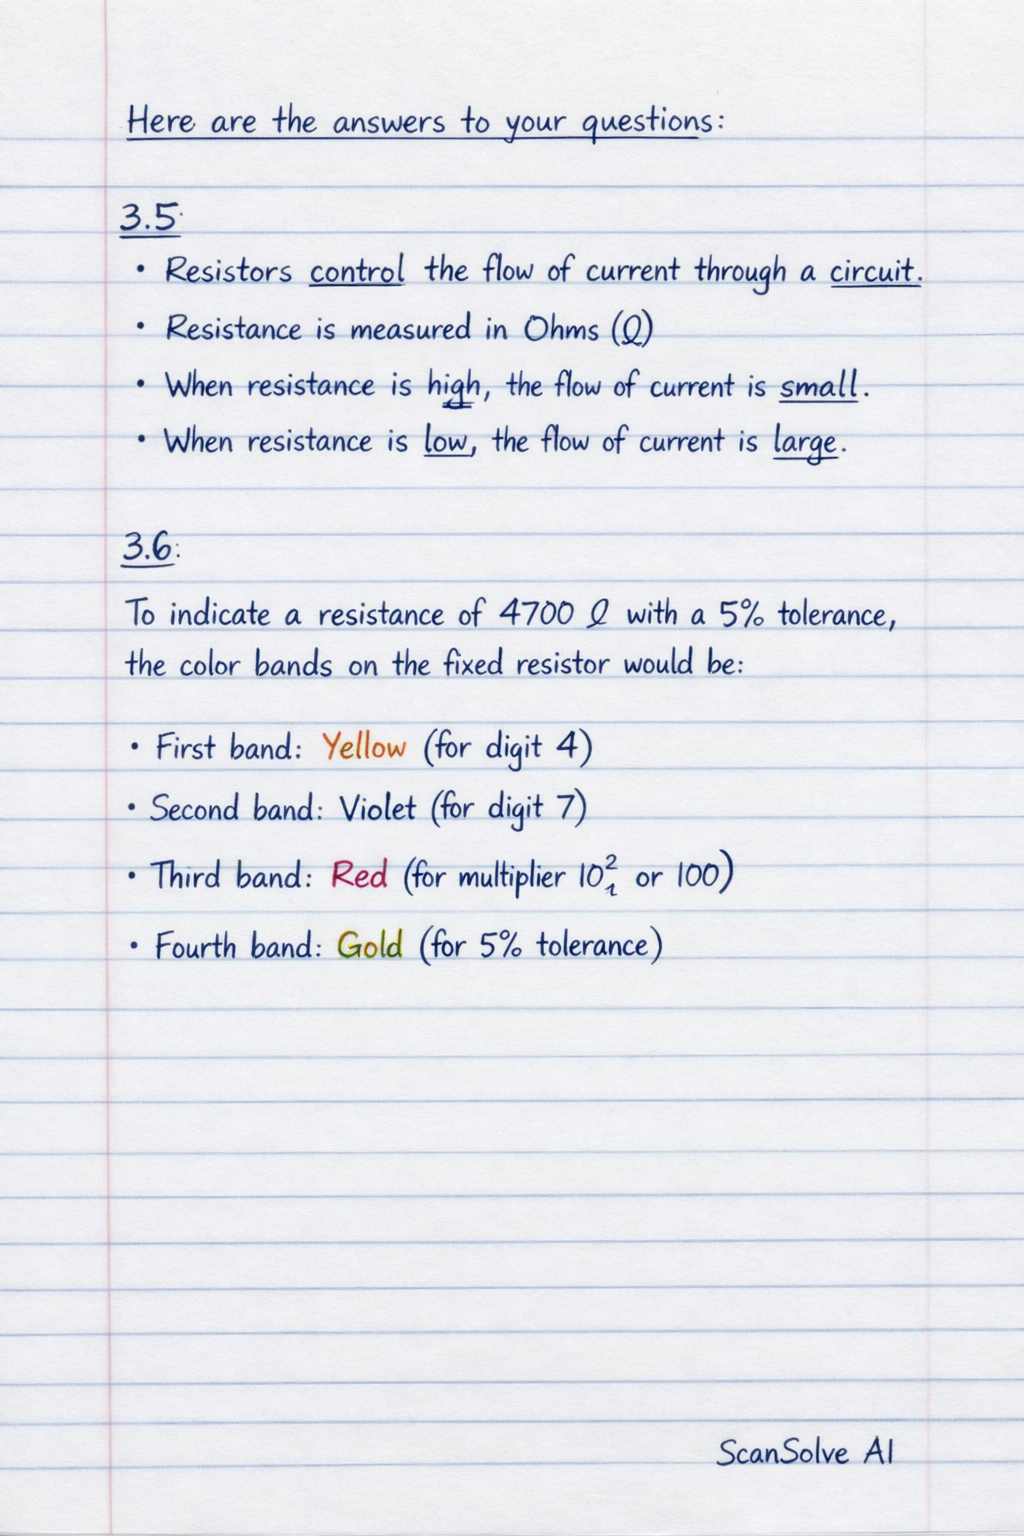 Here are the answers to your questions:
3.5:
• Resistors control the flow of current through a circuit.
• Resistance is measured in Ohms (Ω)
• When resistance is high, the flow of current is small.
• When resistance is low, the flow of current is large.
3.6:
To indicate a resistance of 4700 Ω with a 5% tolerance,
the color bands on the fixed resistor would be:
• First band: Yellow (for digit 4)
• Second band: Violet (for digit 7)
• Third band: Red (for multiplier 10² or 100)
• Fourth band: Gold (for 5% tolerance)
ScanSolve AI